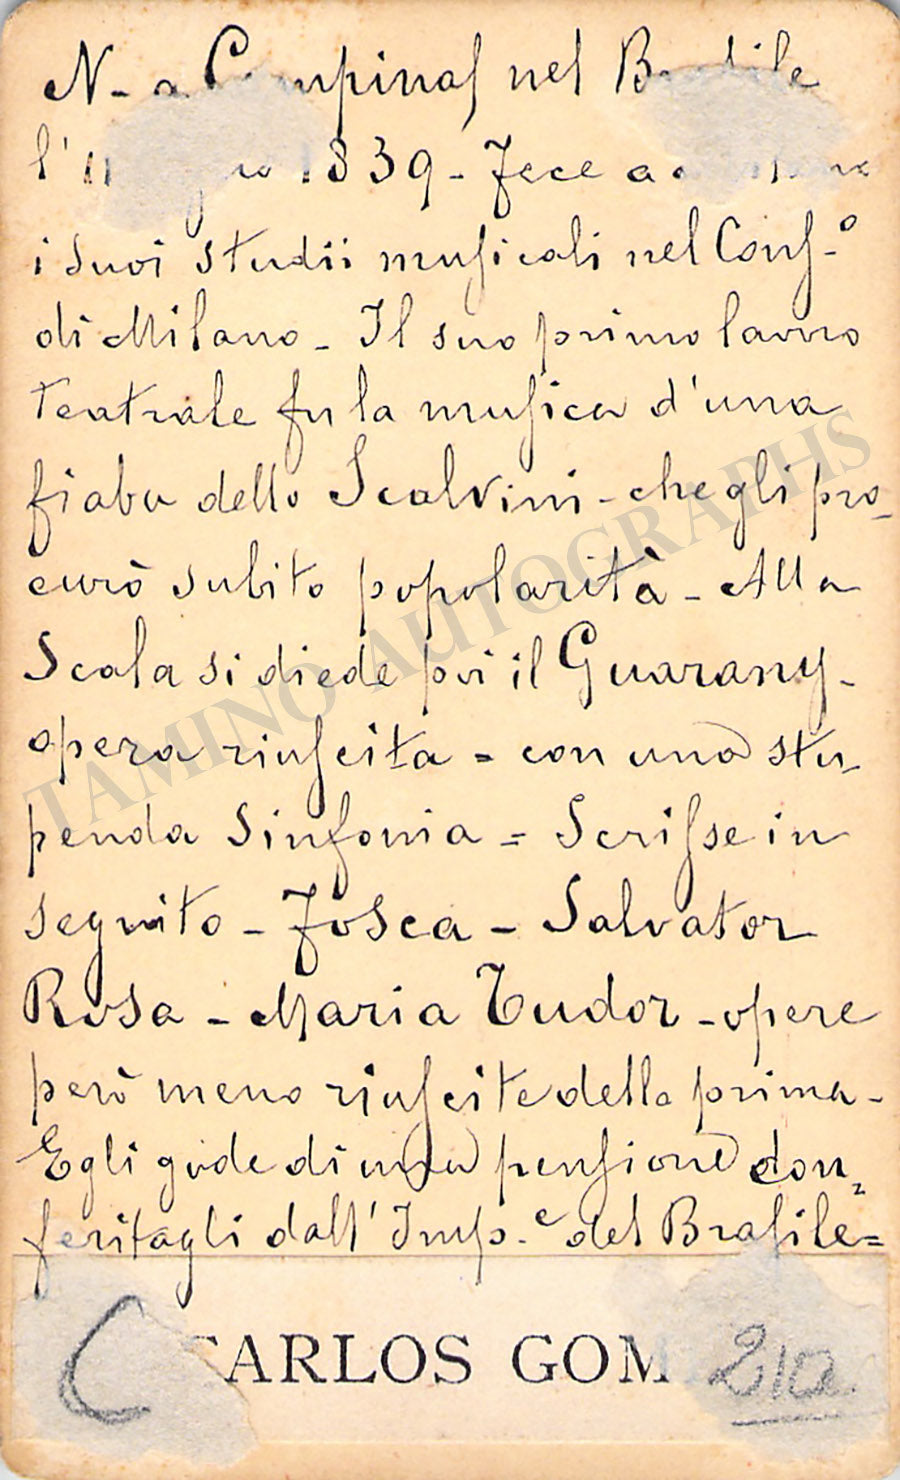 N - a Campinas nel Brasile
l'11 1839 - Fece a
i suoi studii musicali nel Cons.º
di Milano - Il suo primo lavoro
teatrale fu la musica d'una
fiaba dello Scalvini - che gli pro-
curò subito popolarità - Alla
Scala si diede poi il Guarany -
opera riuscita = con una stu-
penda Sinfonia = Scrisse in
seguito - Fosca - Salvator
Rosa - Maria Tudor - opere
però meno riuscite della prima -
Egli gode di una pensione con=
feritagli dall' Imp.e del Brasile =
CARLOS GOM
C
210
TAMINO AUTOGRAPHS